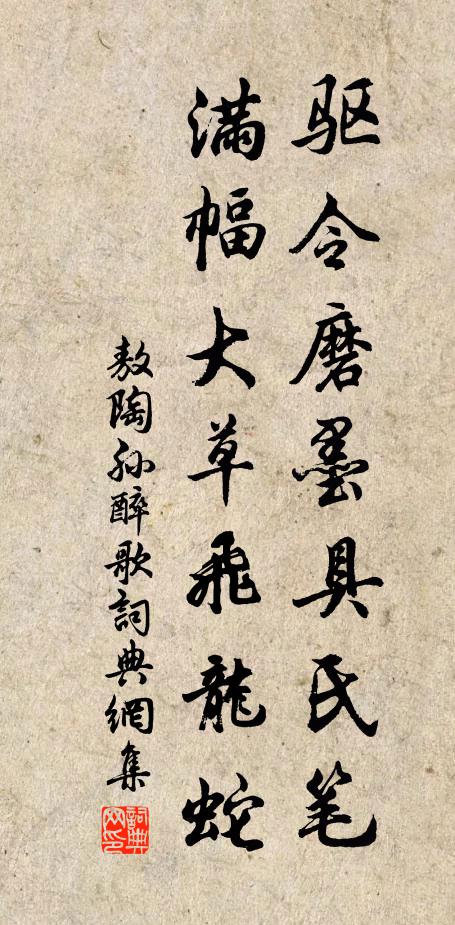 驱令磨墨具氏笔
满幅大草飛龍蛇
敖陶孙醉歌詞典網集
詞典网印